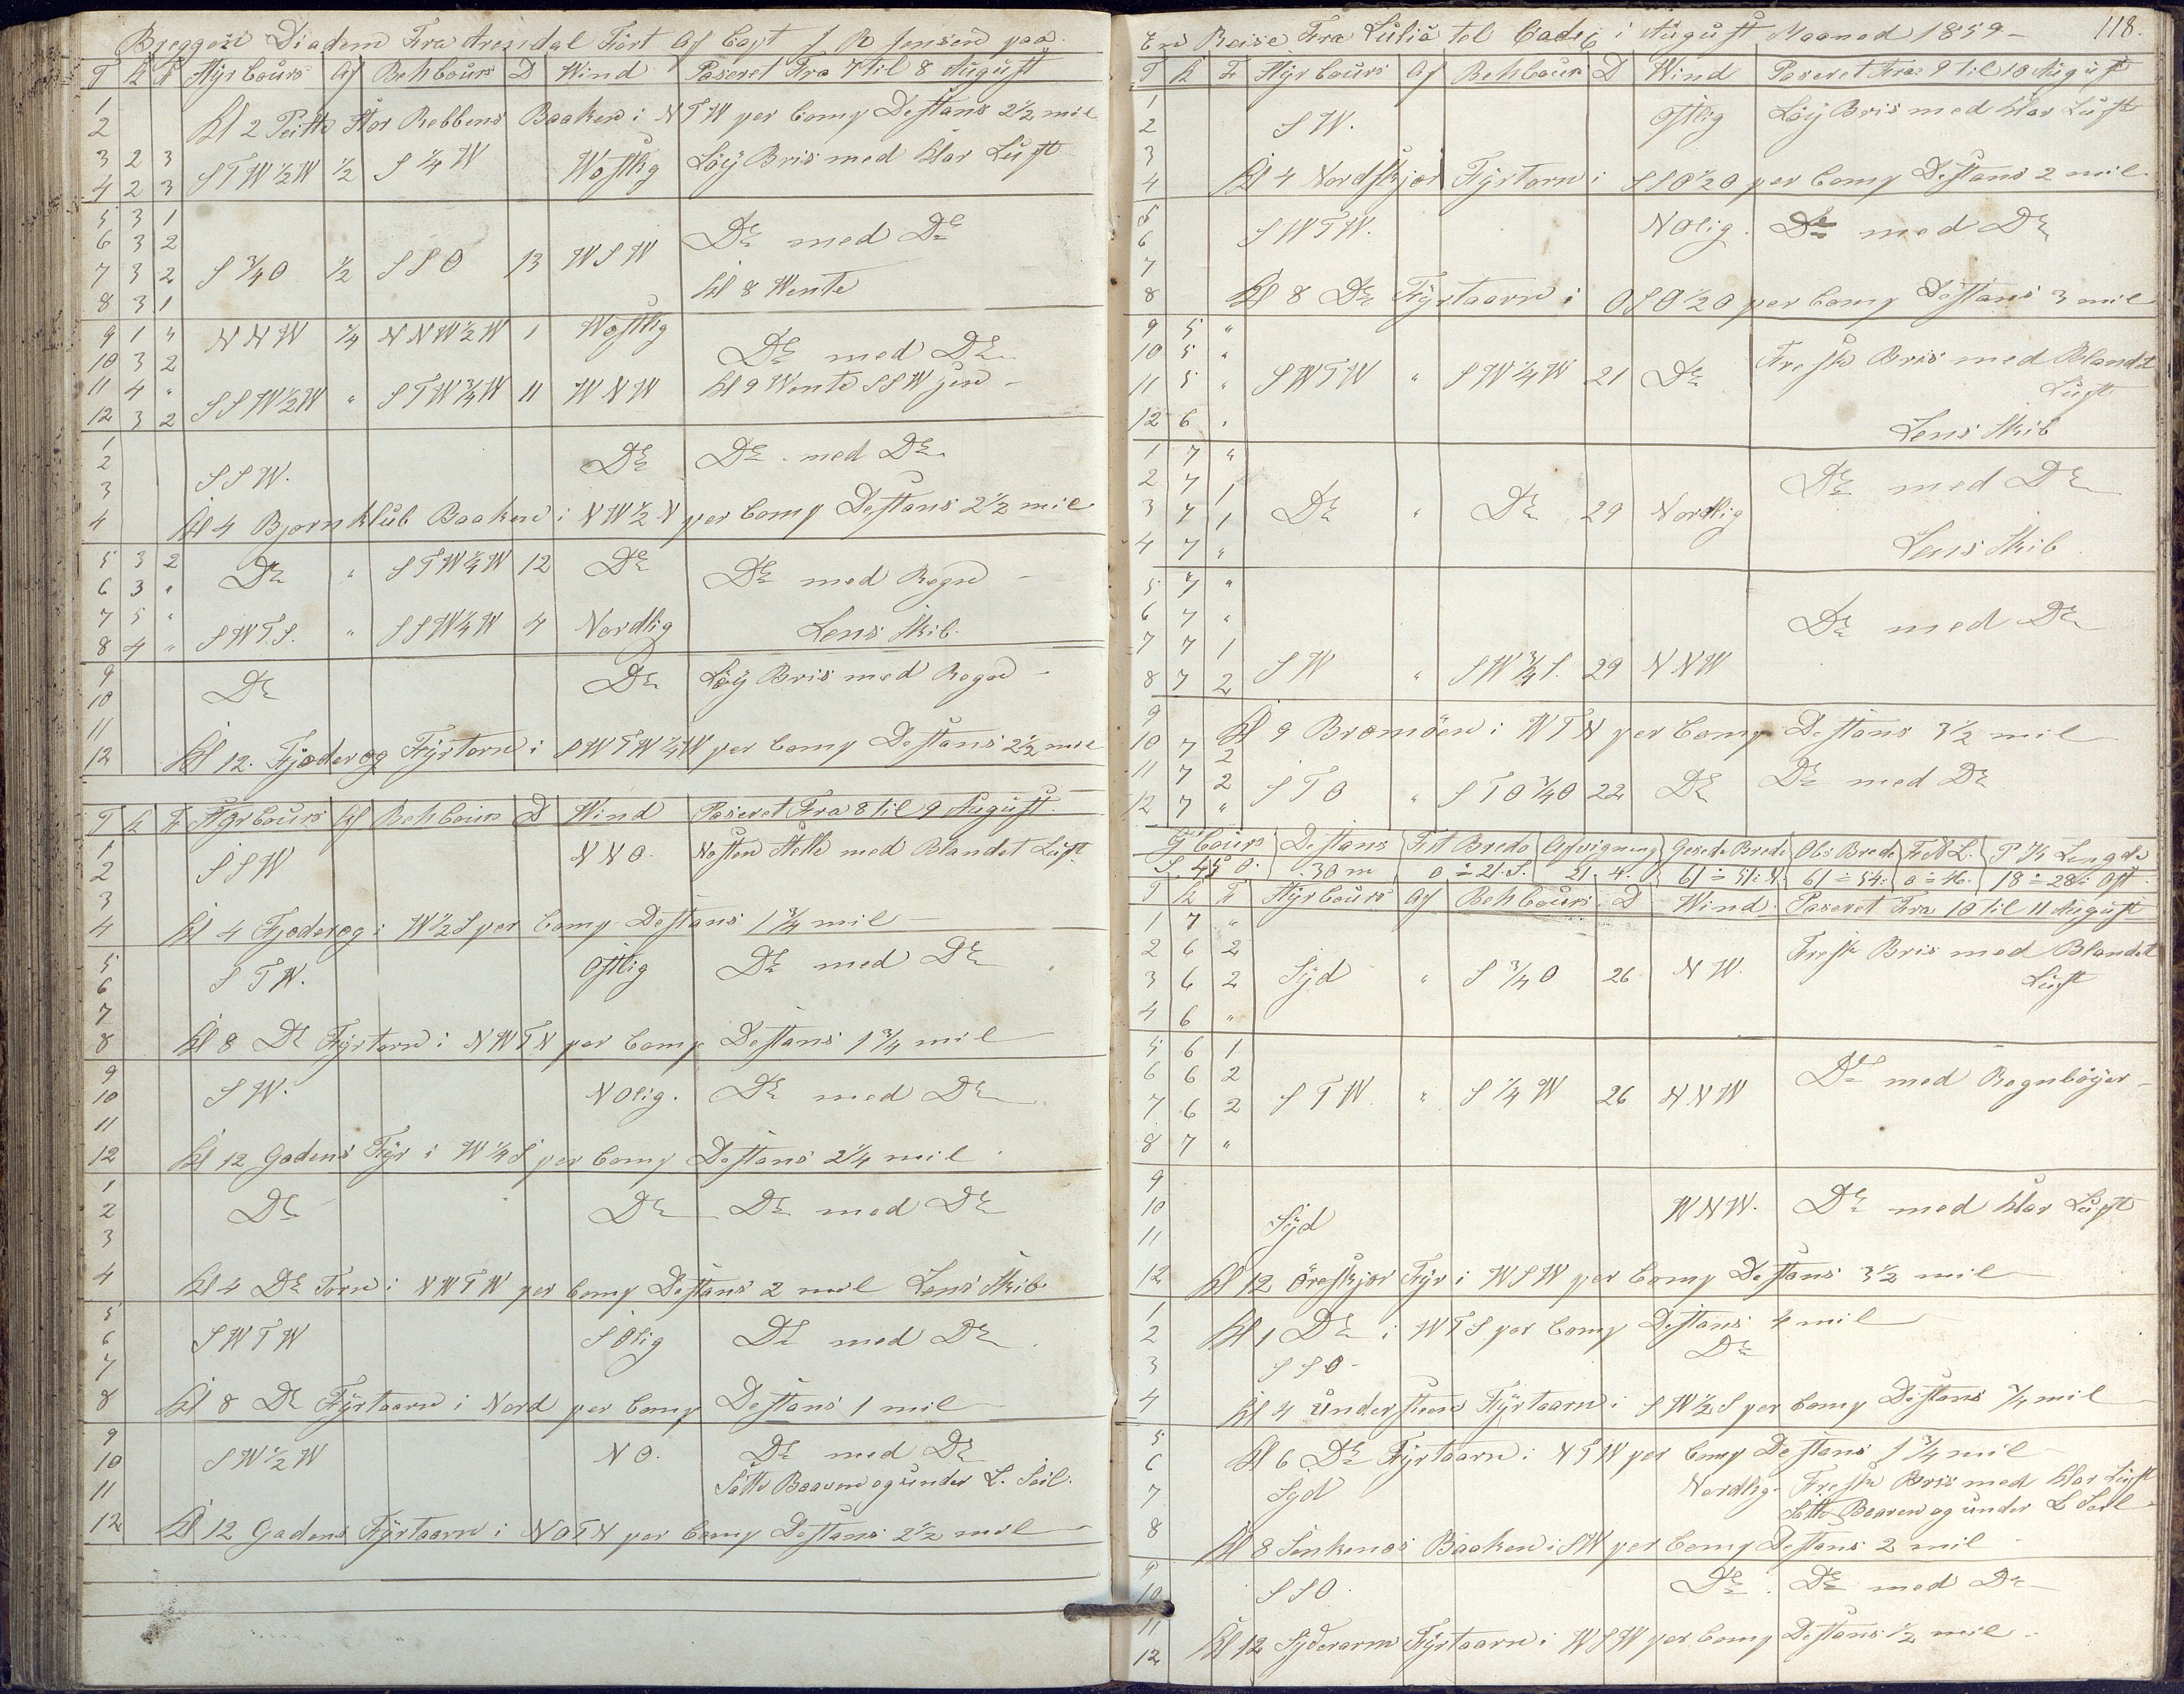 Breggen Diadem Fra Arendal Fört Af Capt J R Jensen paa
T K F Styrcours Af Behcours D Wind Paseret Fra 7 til 8 August
1
2 Kl 2 Peilte Stor Rebbens Baaken i NTW per Comp Destans 2½ mil
3 2 3
4 2 3 STW½W ½ S¼W Wæstlig Löy Bris med klar Luft
5 3 1
6 3 2 Do med Do
7 3 2 S¾O ½ SSO 13 WSW
8 3 1 Kl 8 Wente
9 1 " NNW ¼ NNW½W 1 Wæstlig
10 3 2 Do med Do
11 4 " Kl 9 Wente SSW jen
12 3 2 SSW½W " STW¾W 11 WNW
1
2 Do Do med Do
3 SSW.
4 Kl 4 Bjornklub Baaken i NW½N per Comp Destans 2½ mil
5 3 2 Do " STW¼W 12 Do Do med Regn
6 3 "
7 5 " SWTS. " SSW¼W 4 Nordlig Lens Skib.
8 4 "
9 Do Do Löy Bris med Regn
10
11
12 Kl 12. Fjæderæg Fyrtorn i SWTW¼W per Comp Destans 2½ mil
T K F Styrcours Af Behcours D Wind Paseret Fra 8 til 9 August
1 NNO. Næsten Stelle med Blandet Luft
2 SSW
3
4 Kl 4 Fjæderæg i W½S per Comp Destans 1¾ mil
5 Ostlig Do med Do
6 STW.
7
8 Kl 8 Do Fyrtorn i NWTN per Comp Destans 1¾ mil
9
10 SW. NOlig. Do med Do
11
12 Kl 12 Gadens Fyr i W¼S per Comp Destans 2¼ mil
1
2 Do Do Do med Do
3
4 Kl 4 Do Torn i NWTW per Comp Destans 2 mil Lens Skib
5
6 SWTW SOlig Do med Do
7
8 Kl 8 Do Fyrtaarn i Nord per Comp Destans 1 mil
9
10 SW½W NO. Do med Do
11 Satte Baaven og under L. Seil.
12 Kl 12 Gadens Fyrtaarn i NOTN per Comp Destans 2½ mil
En Reise Fra Luliö til Cadix i August Maaned 1859 118.
T K F Styrcours Af Behcours D Wind Paseret Fra 9 til 10 August
1 Ostlig Löy Bris med klar Luft
2 SW.
3
4 Kl 4 Nordskjær Fyrtorn i SSO½O per Comp Destans 2 mil
5 NOlig. Do med Do
6 SWTW.
7
8 Kl 8 Do Fyrtaarn i OSO½O per Comp Destans 3 mil
9 5 "
10 5 " Fresk Bris med Blandet
11 5 " SWTW " SW¼W 21 Do Luft
12 6 " Lens Skib
1 7 "
2 7 1 Do med Do
3 7 1 Do " Do 29 Nordlig
4 7 " Lens Skib
5 7 "
6 7 " Do med Do
7 7 1
8 7 2 SW " SW¾S. 29 NNW
9 Kl 9 Bromöen i WTN per Comp Destans 3½ mil
10 7 2
11 7 2 STO " STO¾O 22 Do Do med Do
12 7 "
G Cours Destans F A Brede Afvigning Gesede Brede Obs Brede F N L. P K Lengde
S. 45° O. 30 m 0÷21.S. 21. 61÷51.N. 61÷54: 0÷46. 18÷28: Ost
T K F Styrcours Af Behcours D Wind. Paseret Fra 10 til 11 August
1 7 "
2 6 2 Fresk Bris med Blandet
3 6 2 Syd " S¾O 26 NW. Luft
4 6 "
5 6 1
6 6 2 Do med Regnböyer
7 6 2 STW. " S¼W 26 NNW
8 7 "
9
10 WNW. Do med klar Luft
11 Syd
12 Kl 12 Öreskjær Fyr i WSW per Comp Destans 3½ mil
1 Kl 1 Do i WTS per Comp Destans 4 mil
2 Do
3 SSO
4 Kl 4 Understeen Fyrtaarn i SW½S per Comp Destans ¾ mil
5
6 Kl 6 Do Fyrtaarn i NTW per Comp Destans 1¾ mil
7 Syd Nordlig. Fresk Bris med klar Luft
Satte Baaven og under L Seil
8 Kl 8 Senkenæs Baaken i SW per Comp Destans 2 mil
9
10 SSO. Do Do med Do
11
12 Kl 12 Syderarm Fyrtaarn i WSW per Comp Destans ½ mil